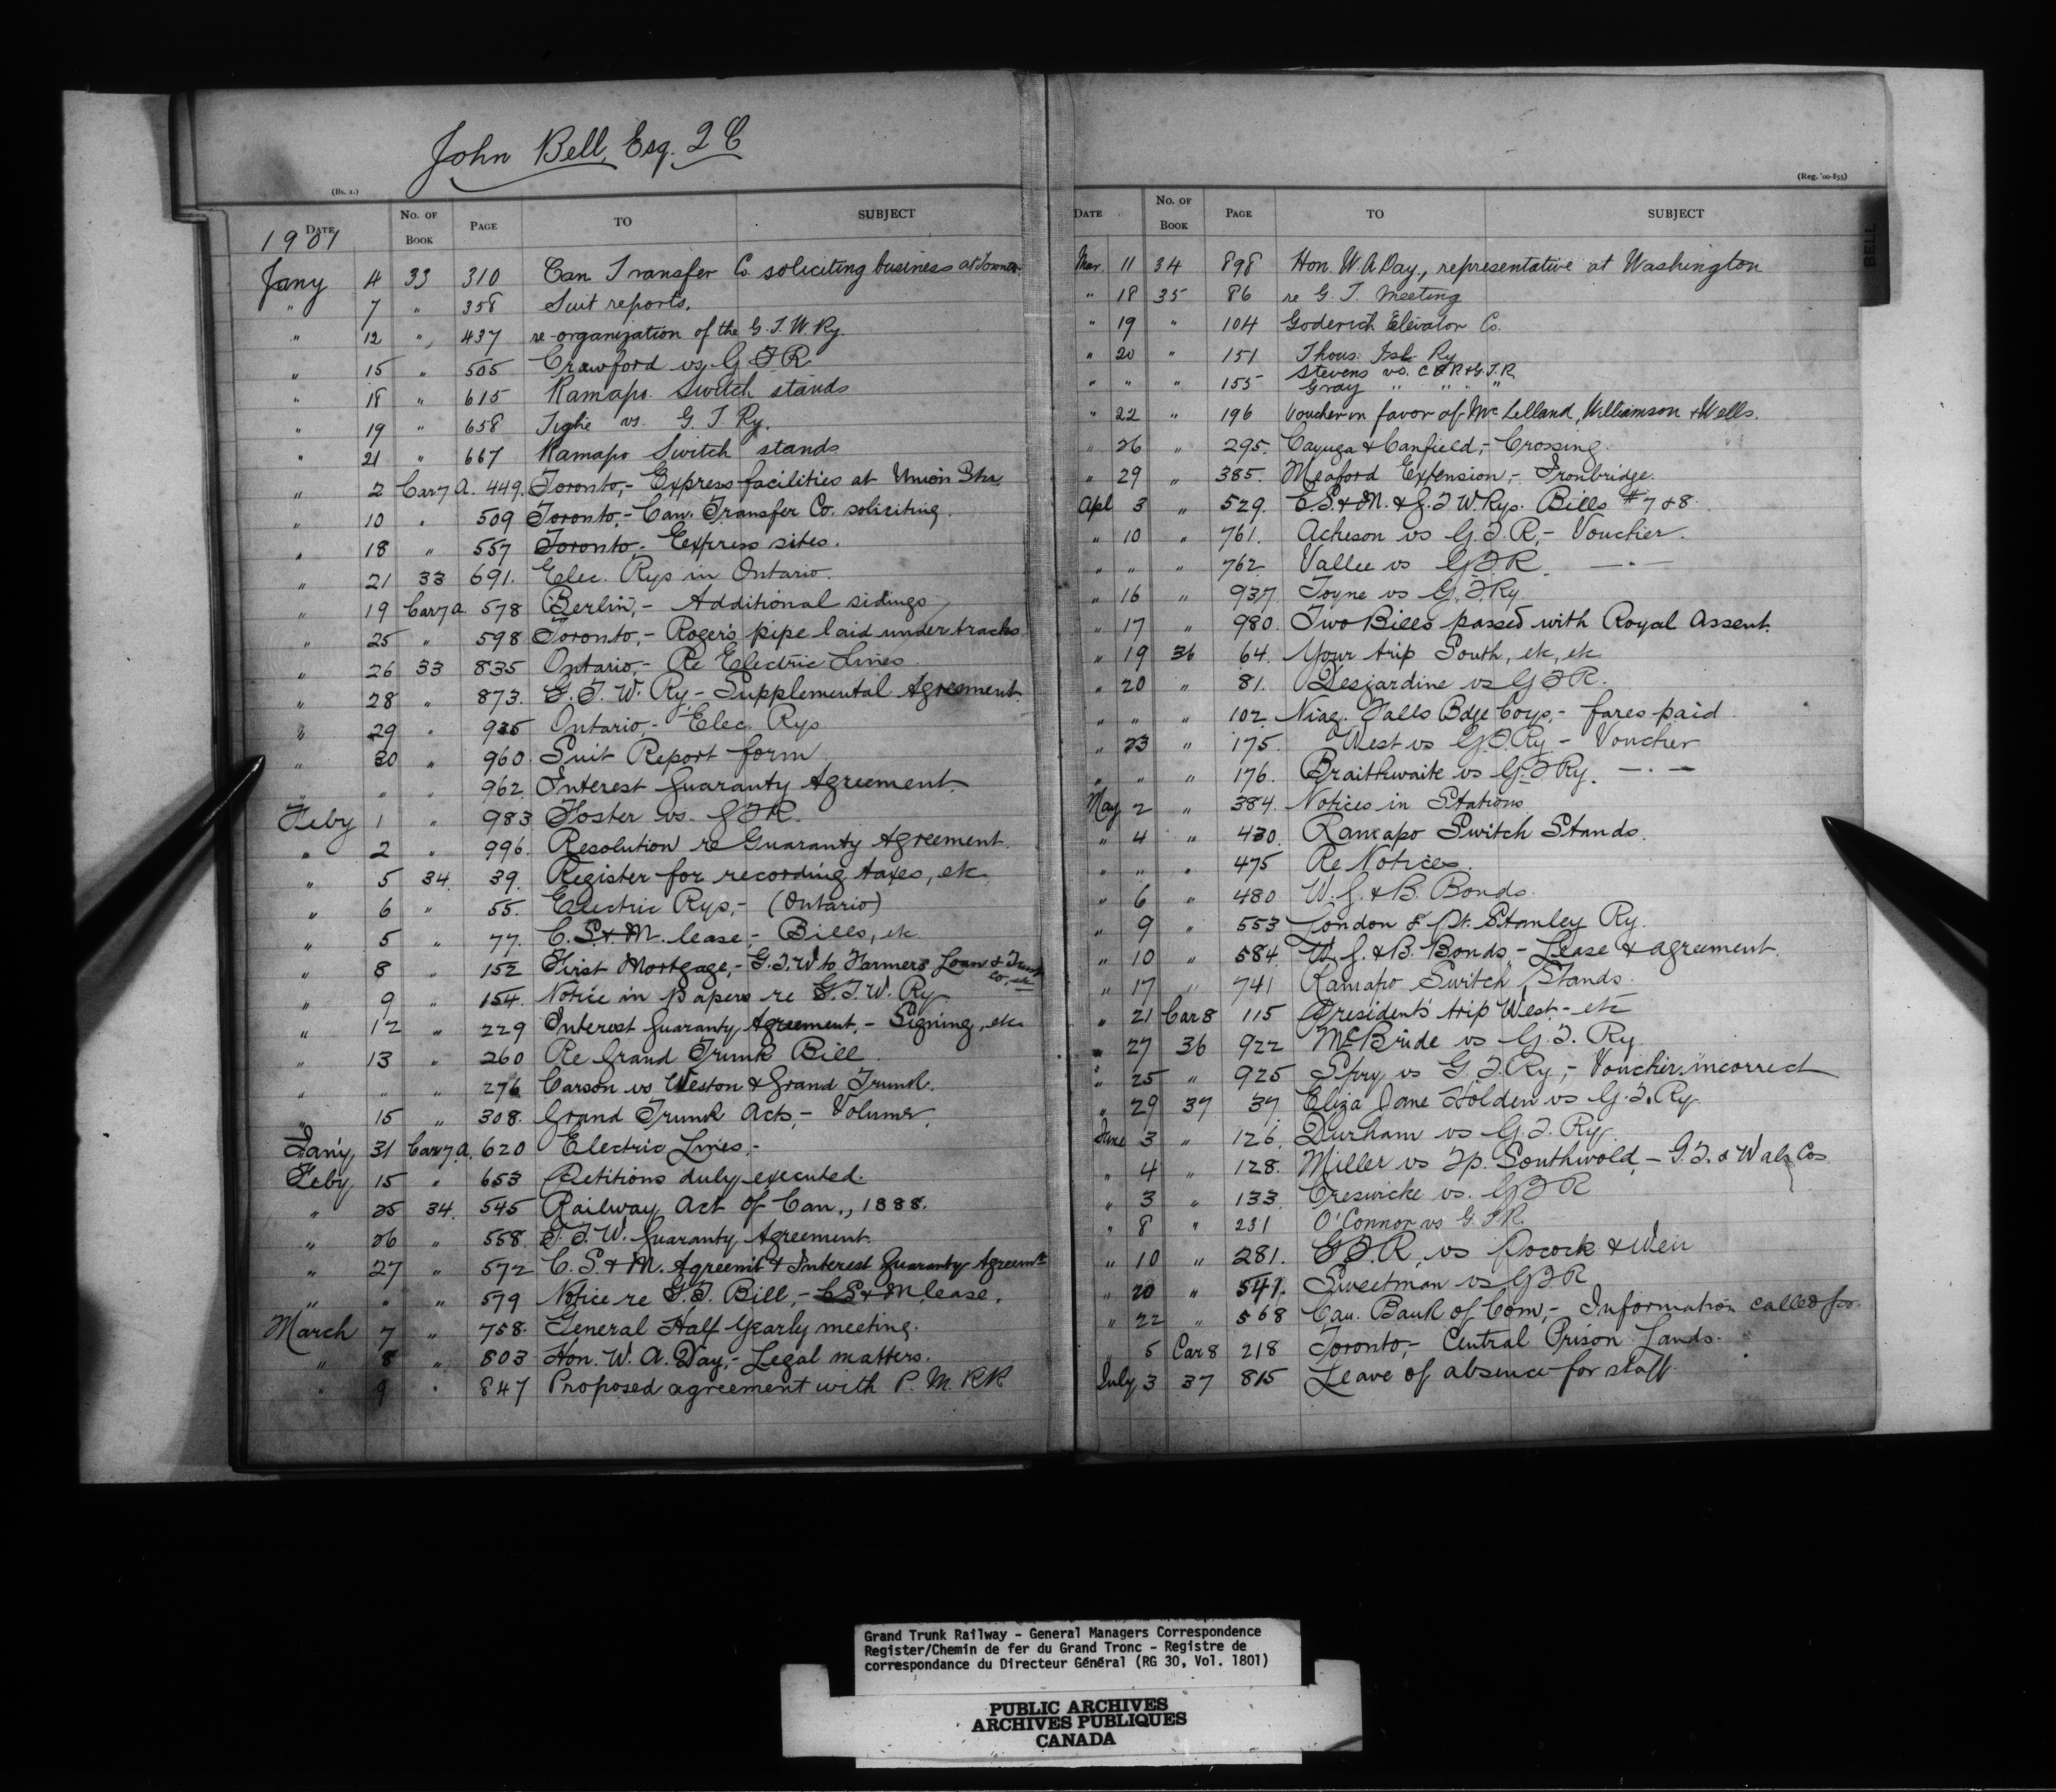 John Bell, Esq. Q C
(Bs. 1.)
DATE No. OF BOOK PAGE TO SUBJECT
1901
Jany 4 33 310 Can Transfer Co. soliciting business at Toronto.
" 7 " 358 Suit reports.
" 12 " 437 re-organization of the G. T. W. Ry.
" 15 " 505 Crawford vs. G T R
" 18 " 615 Ramapo Switch stands
" 19 " 658 Tighe vs. G T Ry.
" 21 " 667 Ramapo Switch stands
" 2 Car 7 A. 449. Toronto,- Express facilities at Union Sta.
" 10 " 509 Toronto,- Can. Transfer Co. soliciting.
" 18 " 557 Toronto,- Express sites.
" 21 33 691. Elec. Rys in Ontario.
" 19 Car 7 a 578 Berlin,- Additional sidings
" 25 " 598 Toronto,- Roger's pipe laid under tracks
" 26 33 835 Ontario,- Re Electric Lines
" 28 " 873. G. T. W. Ry - Supplemental Agreement.
" 29 " 925 Ontario,- Elec. Rys
" 30 " 960 Suit Report form
" " " 962 Interest Guaranty Agreement.
Feby 1 " 983 Foster vs. G T R.
" 2 " 996. Resolution re Guaranty Agreement.
" 5 34 39. Register for recording taxes, etc
" 6 " 55. Electric Rys,- (Ontario)
" 5 " 77. C. S. & M. lease,- Bills, etc
" 8 " 152 First Mortgage,- G. T. W to Farmers Loan & Trust Co, etc
" 9 " 154. Notice in papers re G. T. W. Ry
" 12 " 229 Interest Guaranty Agreement,- Signing, etc
" 13 " 260 Re Grand Trunk Bill
" " " 276 Carson vs Weston & Grand Trunk.
" 15 " 308. Grand Trunk Acts,- Volumes.
Jany 31 Car 7 a. 620 Electric Lines,-
Feby 15 " 653 Petitions duly executed.
" 25 34. 545 Railway Act of Can., 1888.
" 26 " 558. G. T. W. Guaranty Agreement.
" 27 " 572 C. S. & M. Agreemt & Interest Guaranty Agreemt
" " " 579 Notice re G. T. Bill,- C S & M lease.
March 7 " 758. General Half Yearly meeting.
" 8 " 803 Hon. W. A. Day,- Legal matters.
" 9 " 847 Proposed agreement with P. M. RR
(Reg. '00-855)
DATE No. OF BOOK PAGE TO SUBJECT
BELL
Mar. 11 34 898 Hon. W. A Day., representative at Washington
" 18 35 86 re G. T. Meeting
" 19 " 104 Goderich Elevator Co.
" 20 " 151 Thous. Isl. Ry
" " " 155 Stevens vs. C P R & G. T. R
Gray " " " "
" 22 " 196 Voucher in favor of McLelland, Williamson & Wells.
" 26 " 295. Cayuga & Canfield,- Crossing.
" 29 " 385. Meaford Extension,- Ironbridge.
Apl 3 " 529. C. S. & M. & G. T W. Rys. Bills # 7 & 8.
" 10 " 761. Acheson vs G. T. R,- Voucher.
" " " 762 Vallee vs G T R. — " —
" 16 " 937 Toyne vs G. T. Ry.
" 17 " 980. Two Bills passed with Royal Assent.
" 19 36 64. Your trip South, etc, etc
" 20 " 81. Desjardine vs G T R.
" " " 102 Niag. Falls Bdge Coys,- fares paid.
" 23 " 175. West vs G. T. Ry - Voucher
" " " 176. Braithwaite vs G. T Ry. — " —
May 2 " 384. Notices in Stations
" 4 " 430. Ramapo Switch Stands.
" " " 475 Re Notices.
" 6 " 480 W. G. & B. Bonds.
" 9 " 553 London & Pt. Stanley Ry.
" 10 " 584 W. G. & B. Bonds,- Lease & agreement.
" 17 " 741 Ramapo Switch Stands.
" 21 Car 8 115 President's trip West - etc
" 27 36 922 McBride vs G. T. Ry
" 25 " 925 Spry vs G. T. Ry,- Voucher incorrect
" 29 37 37 Eliza Jane Holden vs G. T. Ry.
June 3 " 126. Durham vs G. T. Ry.
" 4 " 128. Miller vs Tp. Southwold,- G. T. & Wab Cos
" 3 " 133. Creswicke vs. G T R
" 8 " 231 O'Connor vs G. T R.
" 10 " 281. G T R, vs Pocock & Weir
" 20 " 541. Sweetman vs G T R
" 22 " 568 Can. Bank of Com,- Information called for.
" 5 Car 8 218 Toronto,- Central Prison Lands.
July 3 37 815 Leave of absence for staff.
Grand Trunk Railway - General Managers Correspondence
Register/Chemin de fer du Grand Tronc - Registre de
correspondance du Directeur Général (RG 30, Vol. 1801)
PUBLIC ARCHIVES
ARCHIVES PUBLIQUES
CANADA